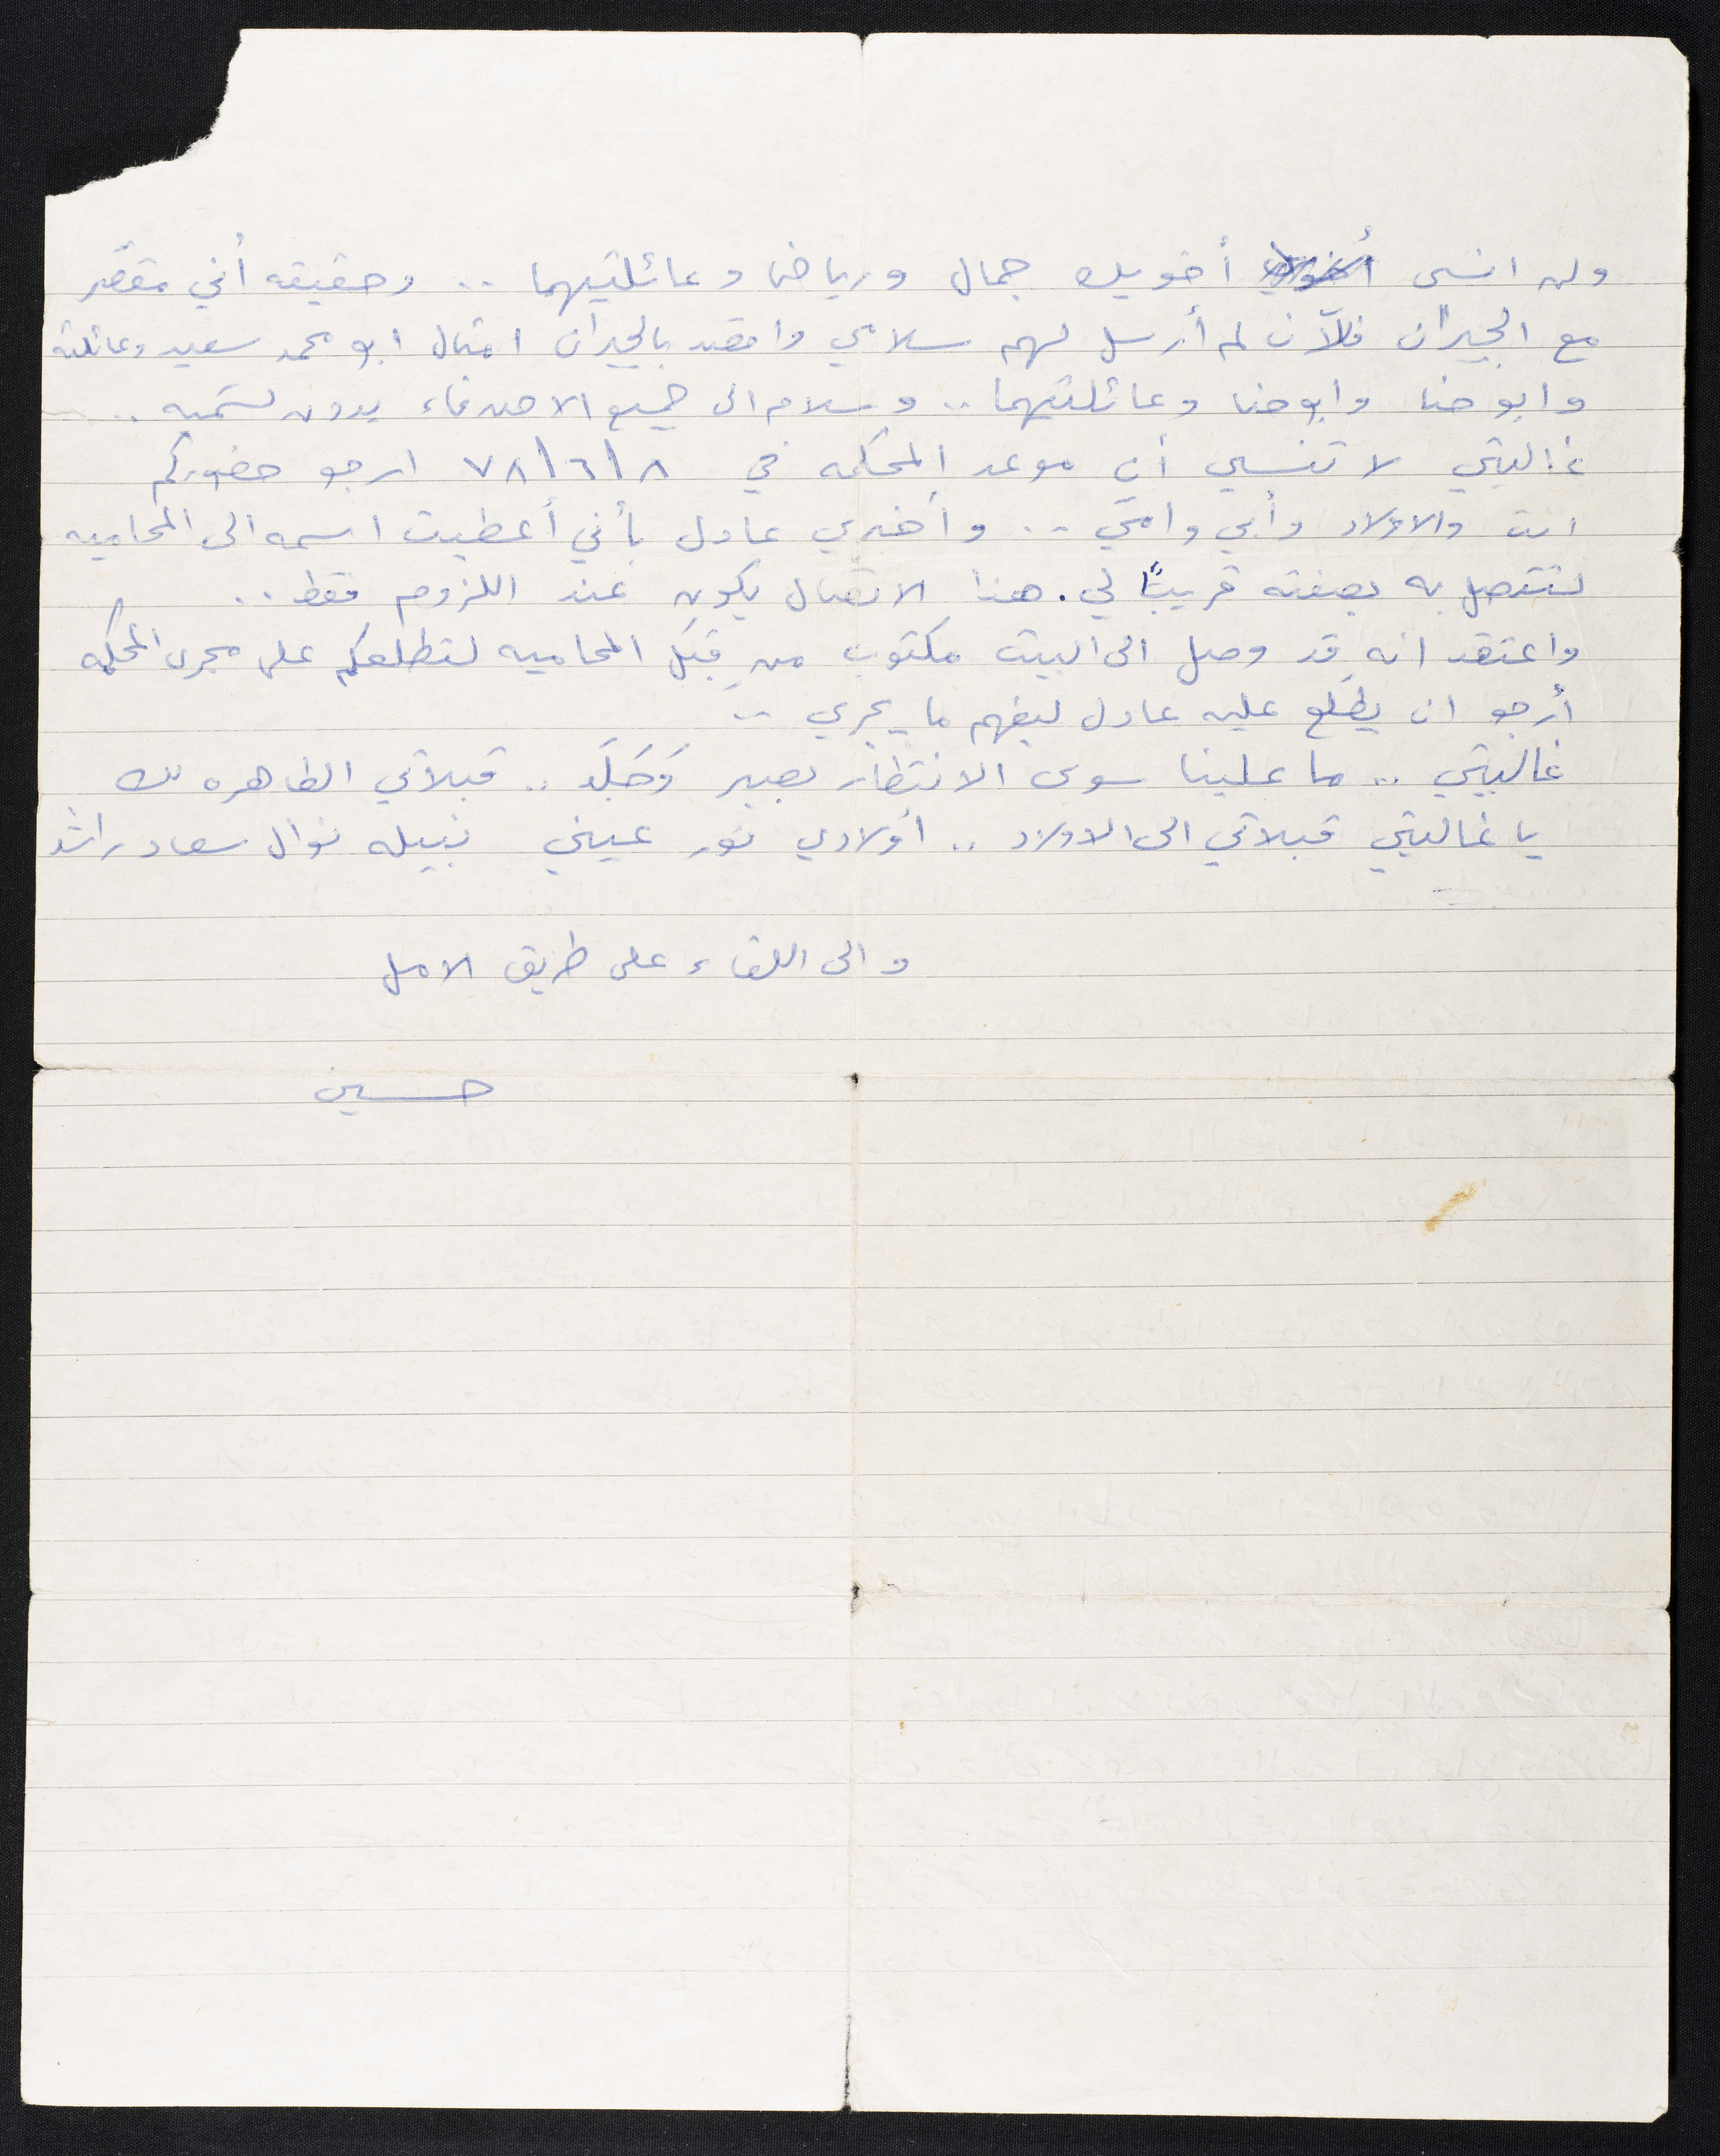 ولن انسى أخويك جمال ورياض وعائلتيهما .. وحقيقه أني مقصّر
مع الجيران فللآن لم أرسل لهم سلامي واقصد بالجيران امثال ابو محمد سعيد وعائلته
وابو حنا وابو حنا وعائلتيهما .. وسلام الى جميع الاصدقاء بدون تسميه ..
غاليتي لا تنسي أن موعد المحكمه في ٧٨/٦/٨ ارجو حضوركم
انت والاولاد وأبي وامّي .. وأخبري عادل بأني أعطيت اسمه الى المحاميه
لتتصل به بصفته قريبًا لي . هذا الاتصال يكون عند اللزوم فقط ..
واعتقد انه قد وصل الى البيت مكتوب من قِبَل المحاميه لتطلعكم على مجرى المحكمه
أرجو ان يطّلع عليه عادل ليفهم ما يجري ..
غاليتي .. ما علينا سوى الانتظار بصبر وَجَلَد .. قبلاتي الطاهره لك
يا غاليتي قبلاتي الى الاولاد .. اولادي نور عيني نبيله نوال سعاد راشد
والى اللقاء على طريق الامل
حسين